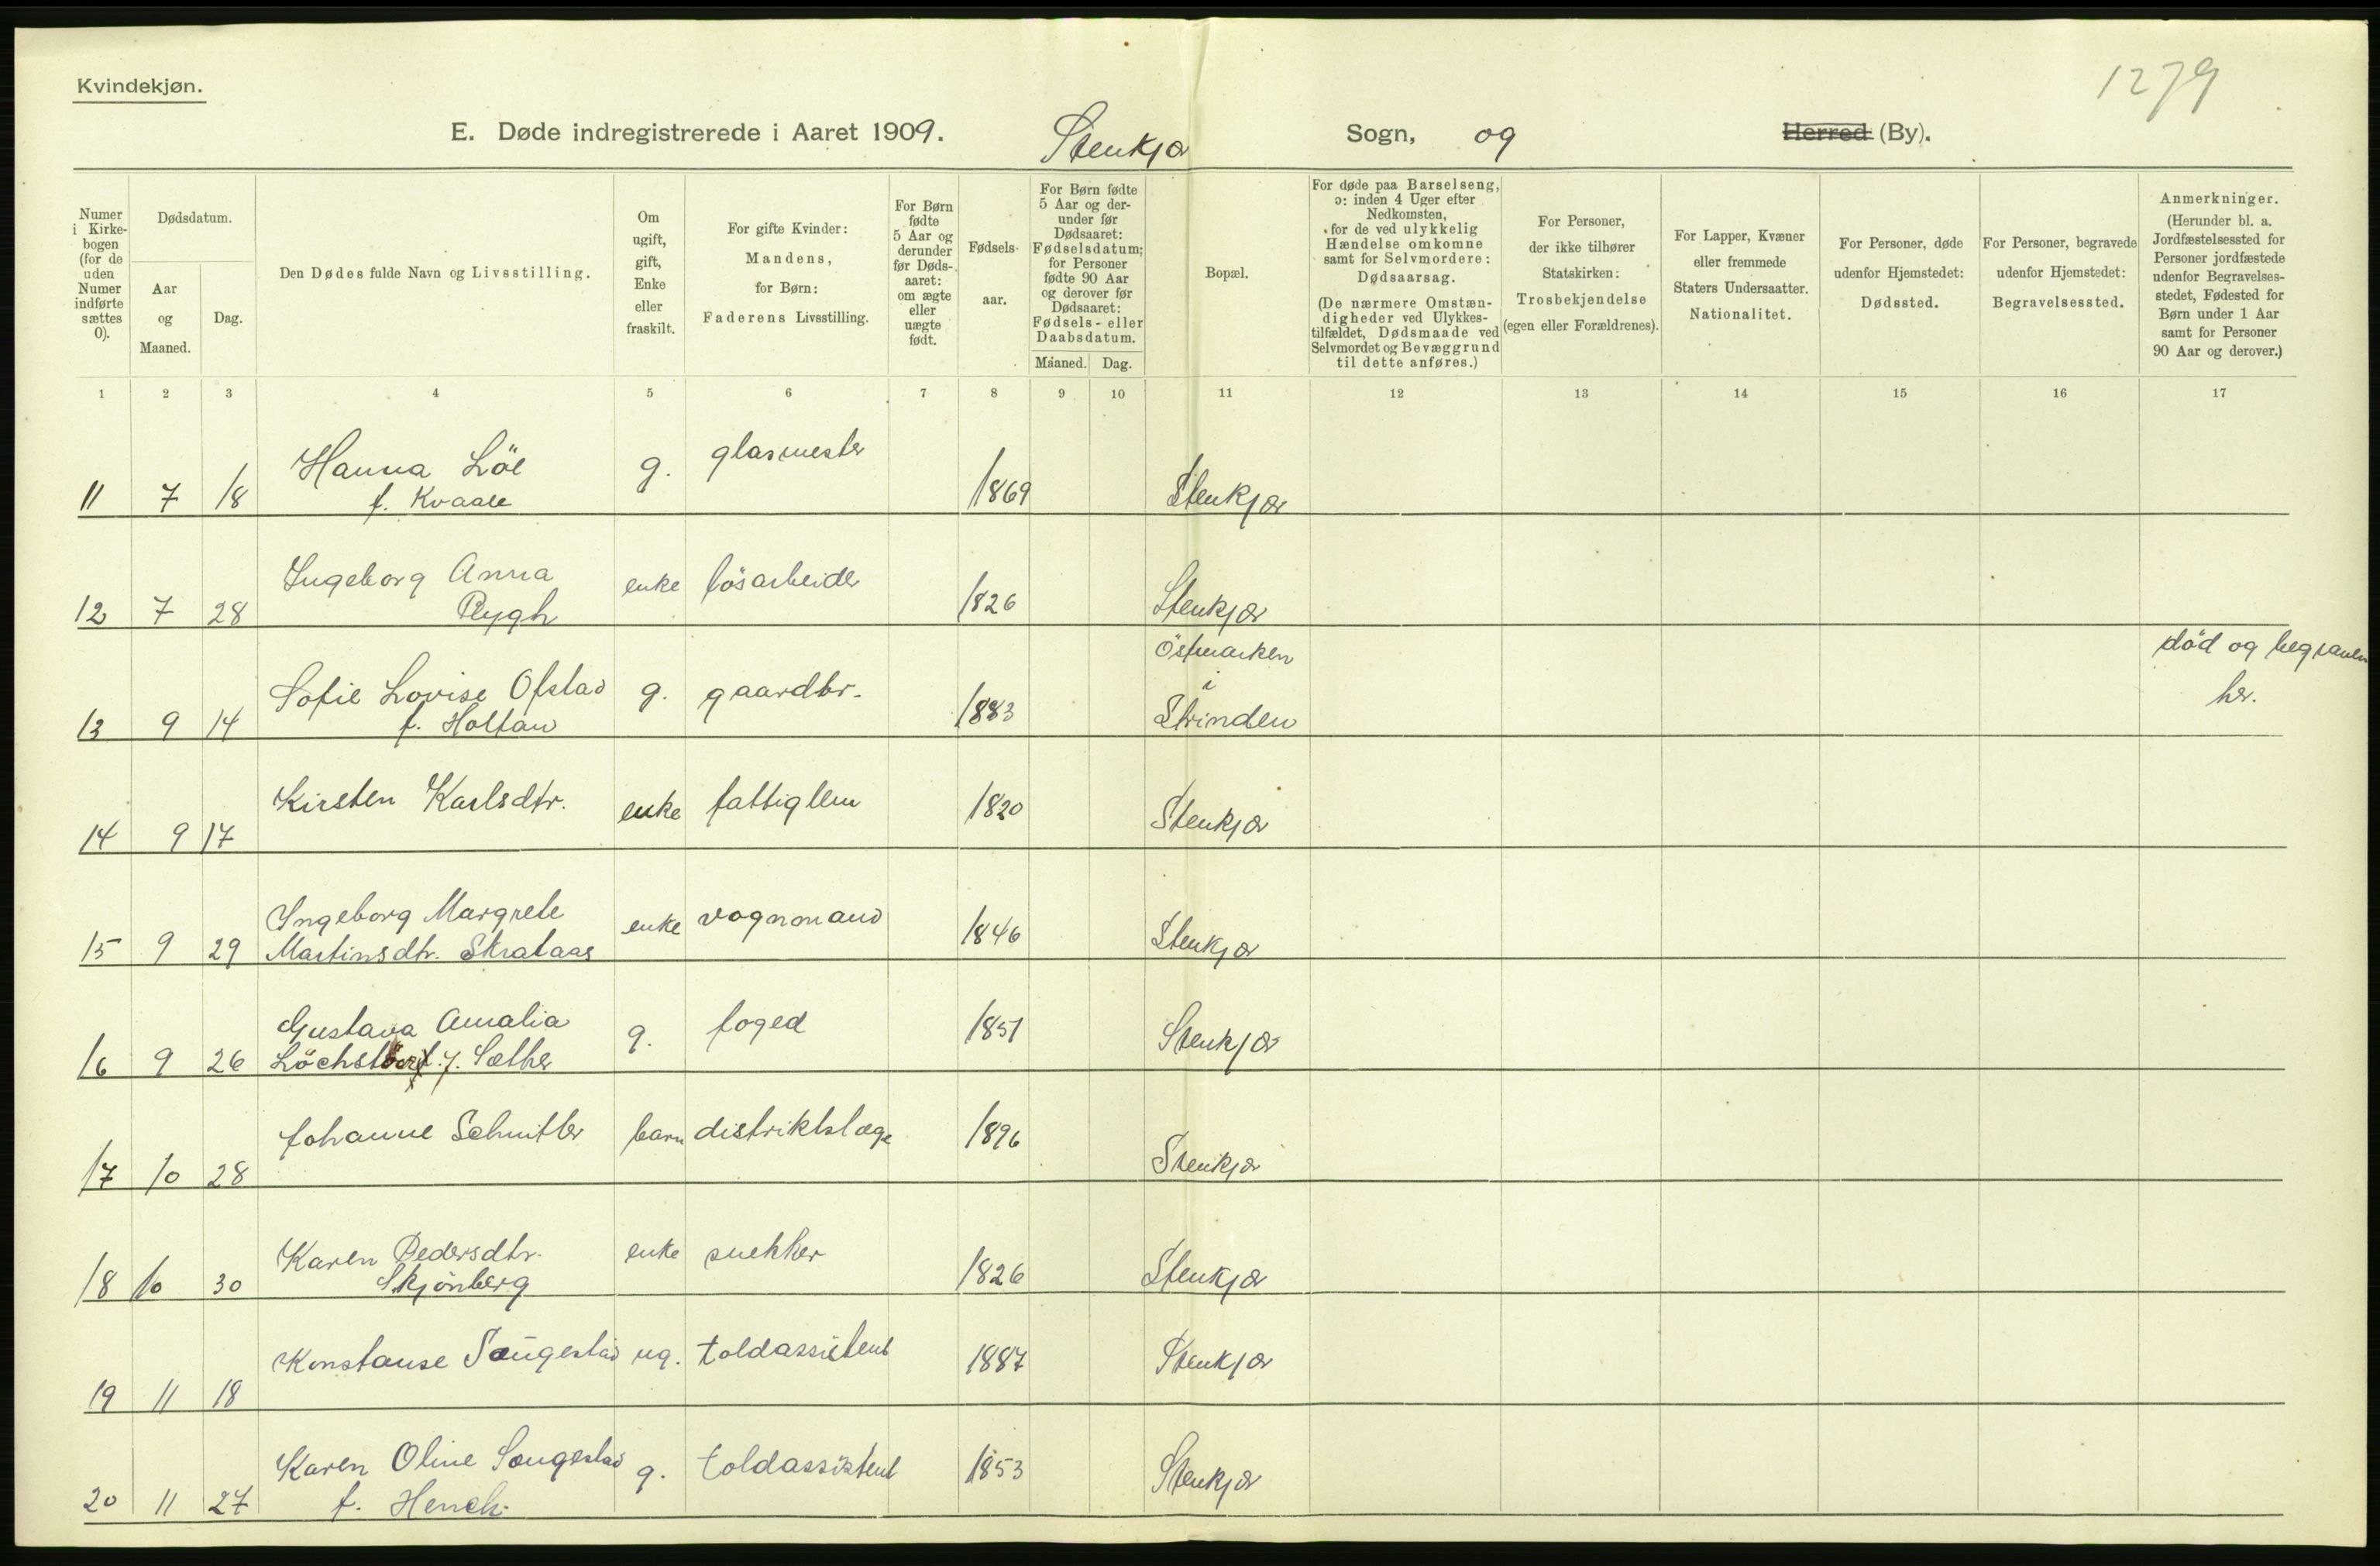 Kvindekjøn.
1279
E. Døde indregistrerede i Aaret 1909. Stenkjær Sogn, og Herred (By).
Numer i Kirke-bogen (for de uden Numer indførte sættes 0).
Dødsdatum.
Aar og Maaned.
Dag.
Den Dødes fulde Navn og Livsstilling.
Om ugift, gift, Enke eller fraskilt.
For gifte Kvinder: Mandens, for Børn: Faderens Livsstilling.
For Børn fødte 5 Aar og derunder før Døds-aaret: om ægte eller uægte født.
Fødsels-aar.
For Børn fødte 5 Aar og der-under før Dødsaaret: Fødselsdatum; for Personer fødte 90 Aar og derover før Dødsaaret: Fødsels- eller Daabsdatum.
Maaned. Dag.
Bopæl.
For døde paa Barselseng, ɔ: inden 4 Uger efter Nedkomsten, for de ved ulykkelig Hændelse omkomne samt for Selvmordere: Dødsaarsag.
(De nærmere Omstæn-digheder ved Ulykkes-tilfældet, Dødsmaade ved Selvmordet og Bevæggrund til dette anføres.)
For Personer, der ikke tilhører Statskirken: Trosbekjendelse (egen eller Forældrenes).
For Lapper, Kvæner eller fremmede Staters Undersaatter. Nationalitet.
For Personer, døde udenfor Hjemstedet: Dødssted.
For Personer, begravede udenfor Hjemstedet: Begravelsessted.
Anmerkninger.
(Herunder bl. a. Jordfæstelsessted for Personer jordfæstede udenfor Begravelses-stedet, Fødested for Børn under 1 Aar samt for Personer 90 Aar og derover.)
1 2 3 4 5 6 7 8 9 10 11 12 13 14 15 16 17
11 7 18 Hanna Löe g. glasmester 1869 Stenkjær
f. Kvaale
12 7 28 Ingeborg Anna enke lösarbeider 1826 Stenkjær
Rygh
13 9 14 Sofie Lovise Ofstad g. gaardbr. 1883 Östmarken død og begraven
f. Holtan i her.
Strinden
14 9 17 Kirsten Karlsdtr. enke fattiglem 1820 Stenkjær
15 9 29 Ingeborg Margrete enke vognmand 1846 Stenkjær
Martinsdtr. Skrataas
16 9 26 Gustava Amalia g. foged 1851 Stenkjær
f. Sæther
17 10 28 Johanne Schnitler barn distriktslæge 1896 Stenkjær
18 10 30 Karen Pedersdtr. enke snekker 1826 Stenkjær
Skjönberg
19 11 18 Konstanse Saugestad ug. toldassistent 1887 Stenkjær
20 11 27 Karen Oline Saugestad g. toldassistent 1853 Stenkjær
f. Henck